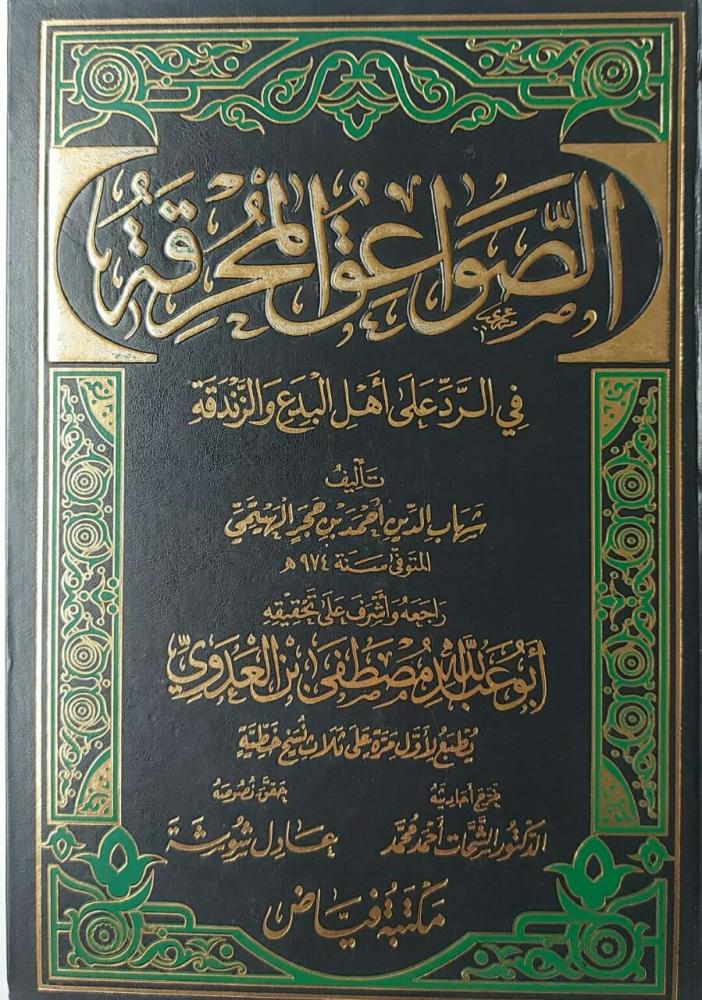 الصَّوَاعِقُ المُحْرِقَةُ
فِي الرَّدِّ عَلَى أَهْلِ الْبِدَعِ وَالزَّنْدَقَةِ
تَأْلِيفُ
شِهَابِ الدِّينِ أَحْمَدَ بْنِ حَجَرٍ الْهَيْتَمِيِّ
المتَوَفَّى سَنَة ٩٧٤ هـ
رَاجَعَهُ وَأَشْرَفَ عَلَى تَحْقِيقِهِ
أَبُو عَبْدِ اللَّهِ مُصْطَفَى بْنُ الْعَدَوِيِّ
يُطْبَعُ لأَوَّلِ مَرَّة عَلَى ثَلَاثِ نُسَخٍ خَطِّيَّةٍ
تخريج أحاديثه
الدكتور الشحات أحمد محمد
حَقَّقَ نُصُوصَهُ
عَادِل شُوشَة
مكتبة فياض